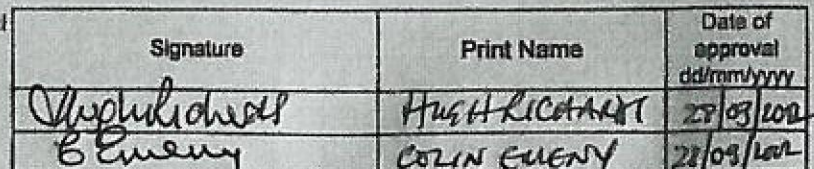 Signature Print Name Date of approval dd/mm/yyyy
Hugh Richards HUGH RICHARDS 28/09/2012
C Emeny COLIN EMENY 28/09/2012